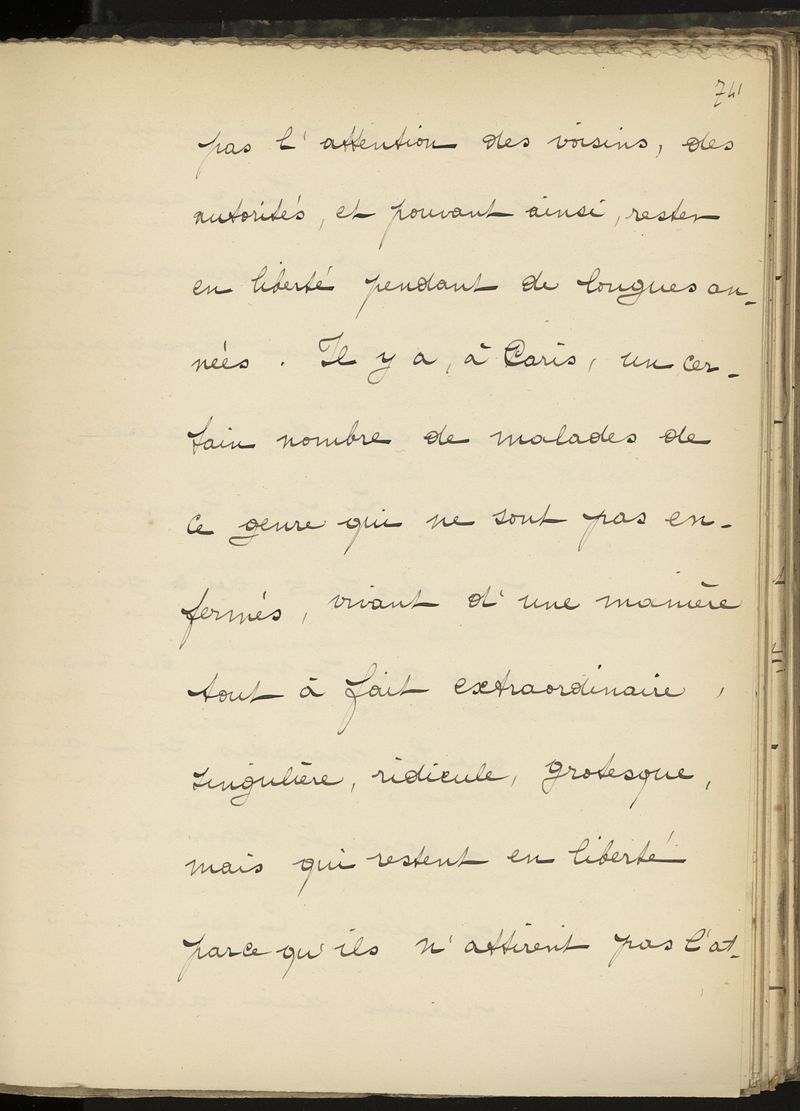 741
pas l'attention des voisins, des
autorités, et pouvant ainsi, rester
en liberté pendant de longues an-
nées. Il y a, à Paris, un cer-
tain nombre de malades de
ce genre qui ne sont pas en-
fermés, vivant d'une manière
tout à fait extraordinaire,
singulière, ridicule, grotesque,
mais qui restent en liberté
parce qu'ils n'attirent pas l'at-